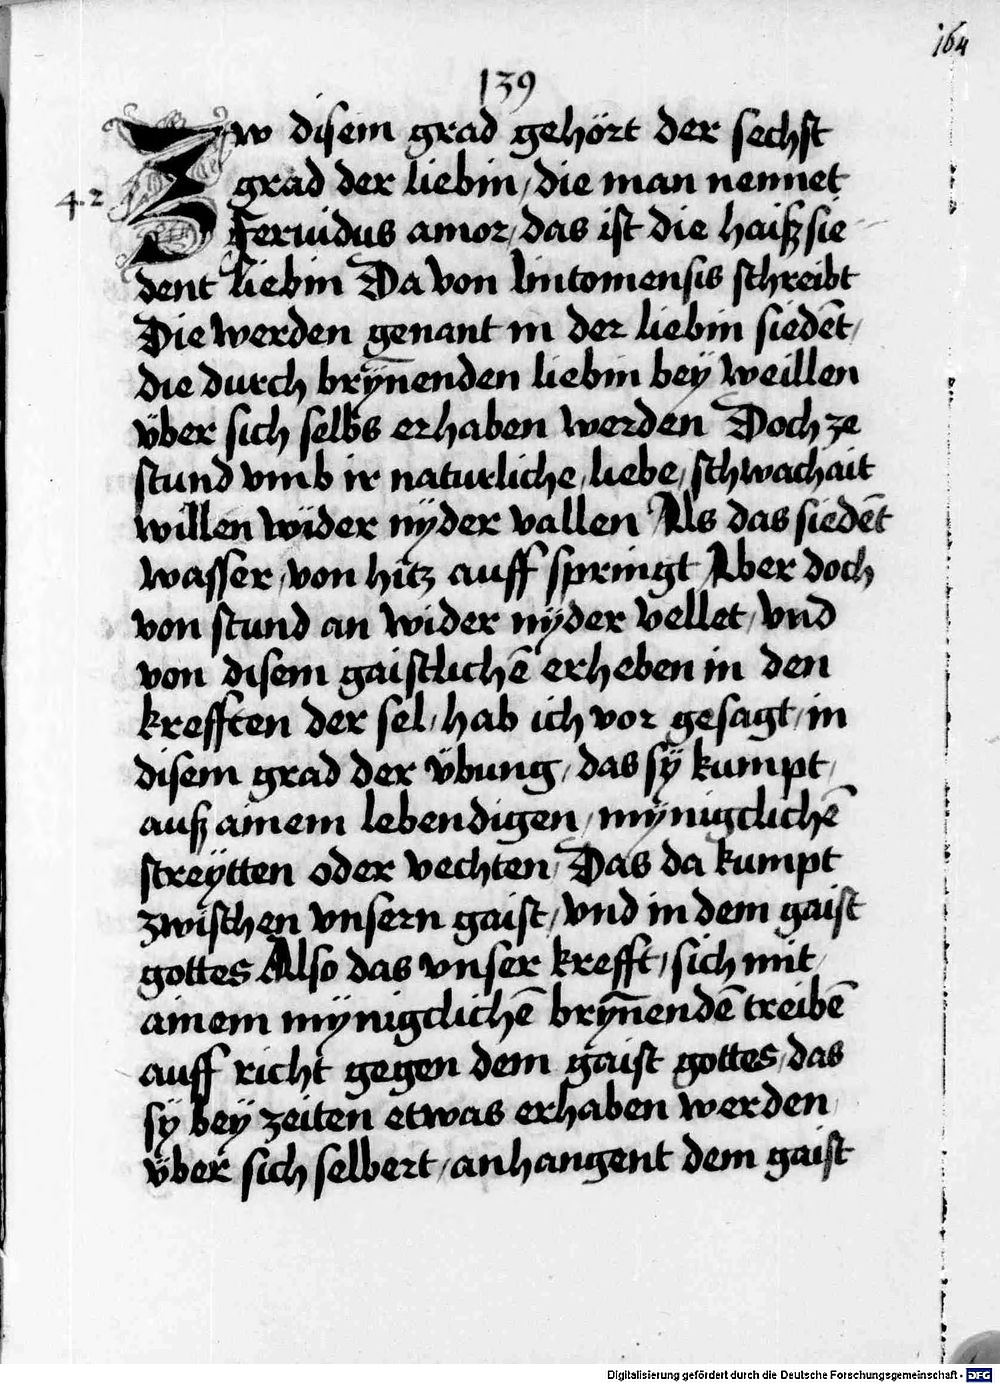 164
139
Zw disem grad gehört der sechst
42 grad der liebin / die man nennet
Feruidus amor / das ist die haiß sie
dent liebin Da von lintomensis schreibt
Die werden genant in der liebin siedēt /
die durch brȳnenden liebin bey weillen
über sich selbs erhaben werden Doch ze
stund vmb ir naturliche / liebe / schwachait
willen wider nÿder vallen Als das siedēt
wasser / von hitz auff springt Aber doch
von stund an wider nÿder vellet / vnd
von disem gaistlichē erheben in den
krefften der sel / hab ich vor gesagt / in
disem grad der übung / das sÿ kumpt /
auß ainem lebendigen / mÿnigclichē
streÿtten oder vechten / Das da kumpt
zwischen vnsern gaist / vnd in dem gaist
gottes Also das vnser krefft / sich mit /
ainem mÿnigclichē brȳnendē treibē
auff richt gegen dem gaist gottes / das
sÿ beÿ zeiten etwas erhaben werden /
über sich selbert / anhangent dem gaist
Digitalisierung gefördert durch die Deutsche Forschungsgemeinschaft - DFG